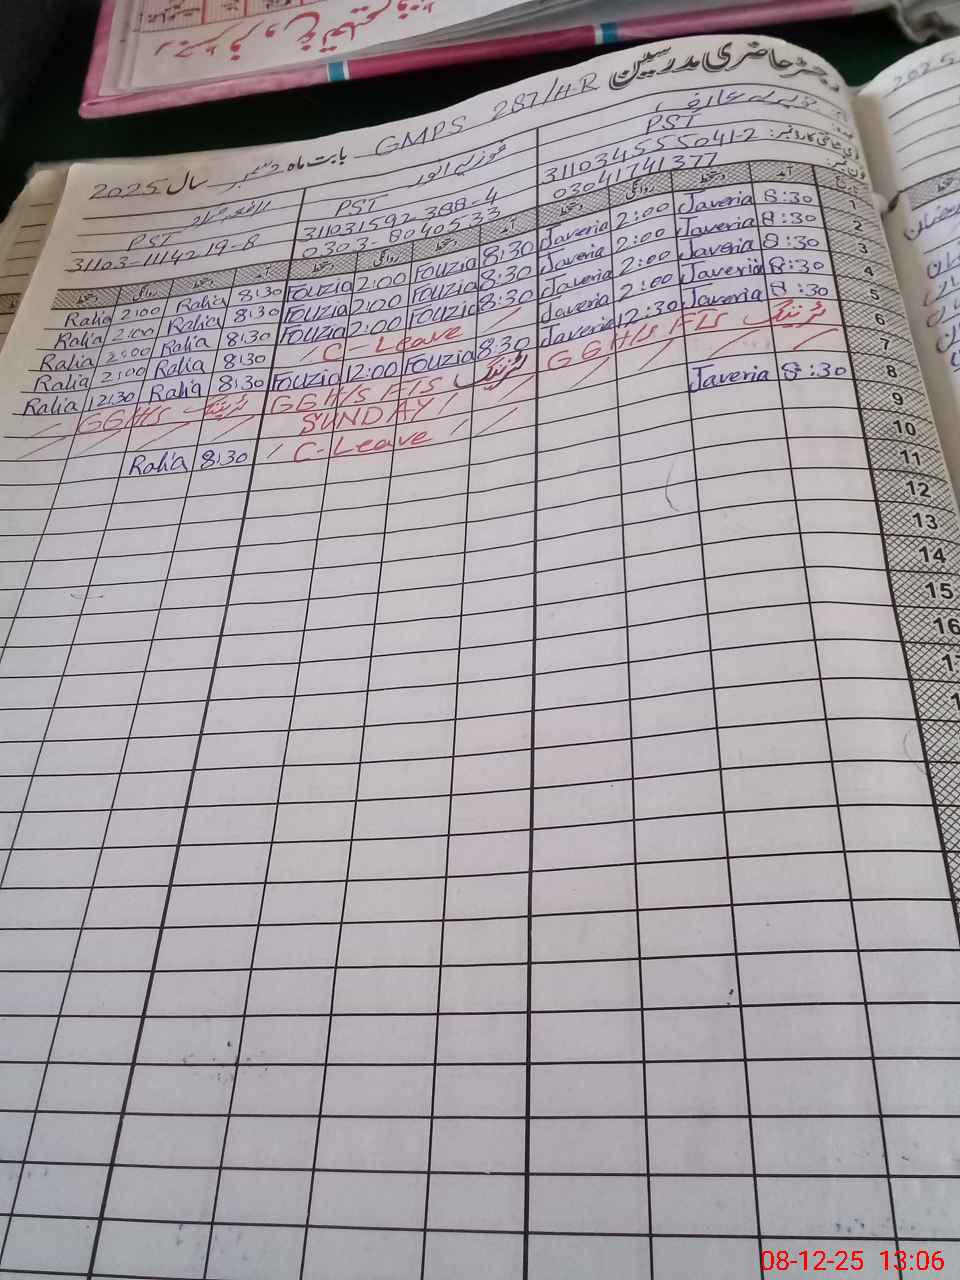 رجسٹر حاضری مدرسین GMPS 287/H-R بابت ماہ دسمبر سال 2025
جویریہ عارف
فوزیہ انور
PST
PST
PST
31103455504 1-2
031103-11142 19-8
311031592-388-4
03041741377
0303-8040533
تاریخ
آمد دستخط روانگی دستخط آمد دستخط روانگی دستخط آمد دستخط روانگی دستخط
1 8:30 Javeria 2:00 Javeria 8:30 Fouzia 2:00 Fouzia 8:30 Ralia 2:00 Ralia
2 8:30 Javeria 2:00 Javeria 8:30 Fouzia 2:00 Fouzia 8:30 Ralia 2:00 Ralia
3 8:30 Javeria 2:00 Javeria 8:30 Fouzia 2:00 Fouzia 8:30 Ralia 2:00 Ralia
4 8:30 Javeria 2:00 Javeria C-Leave 8:30 Ralia 2:00 Ralia
5 8:30 Javeria 12:30 Javeria 8:30 Fouzia 12:00 Fouzia 8:30 Ralia 12:30 Ralia
6 GGH/S FLS ٹریننگ GGH/S FLS ٹریننگ GGH/S ٹریننگ
7 SUNDAY
8 8:30 Javeria C-Leave 8:30 Ralia
9
10
11
12
13
14
15
16
2025
08-12-25 13:06